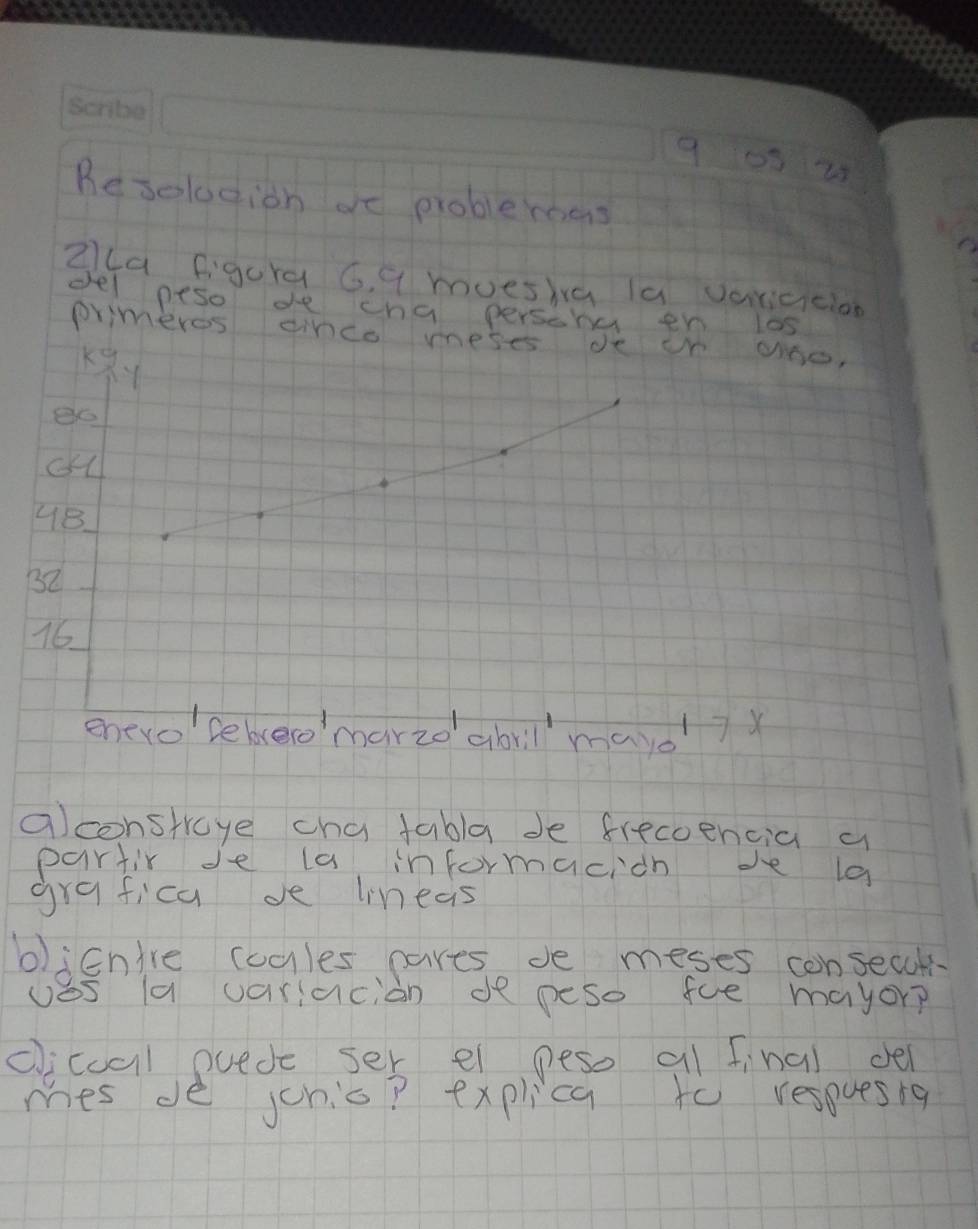 Scribe
9 05 25
Resolución de problemas
2) La figura 6.9 muestra la variación
del peso de una persona en los
primeros cinco meses de un año.
kg
y
80
64
48
32
16
enero febrero marzo abril mayo x
a) construye una tabla de frecuencia a
partir de la información de la
grafica de lineas
b) ¿Entre cuales pares de meses consecuti-
vos la variación de peso fue mayor?
c) ¿cual puede ser el peso al final del
mes de junio? explica tu respuesta